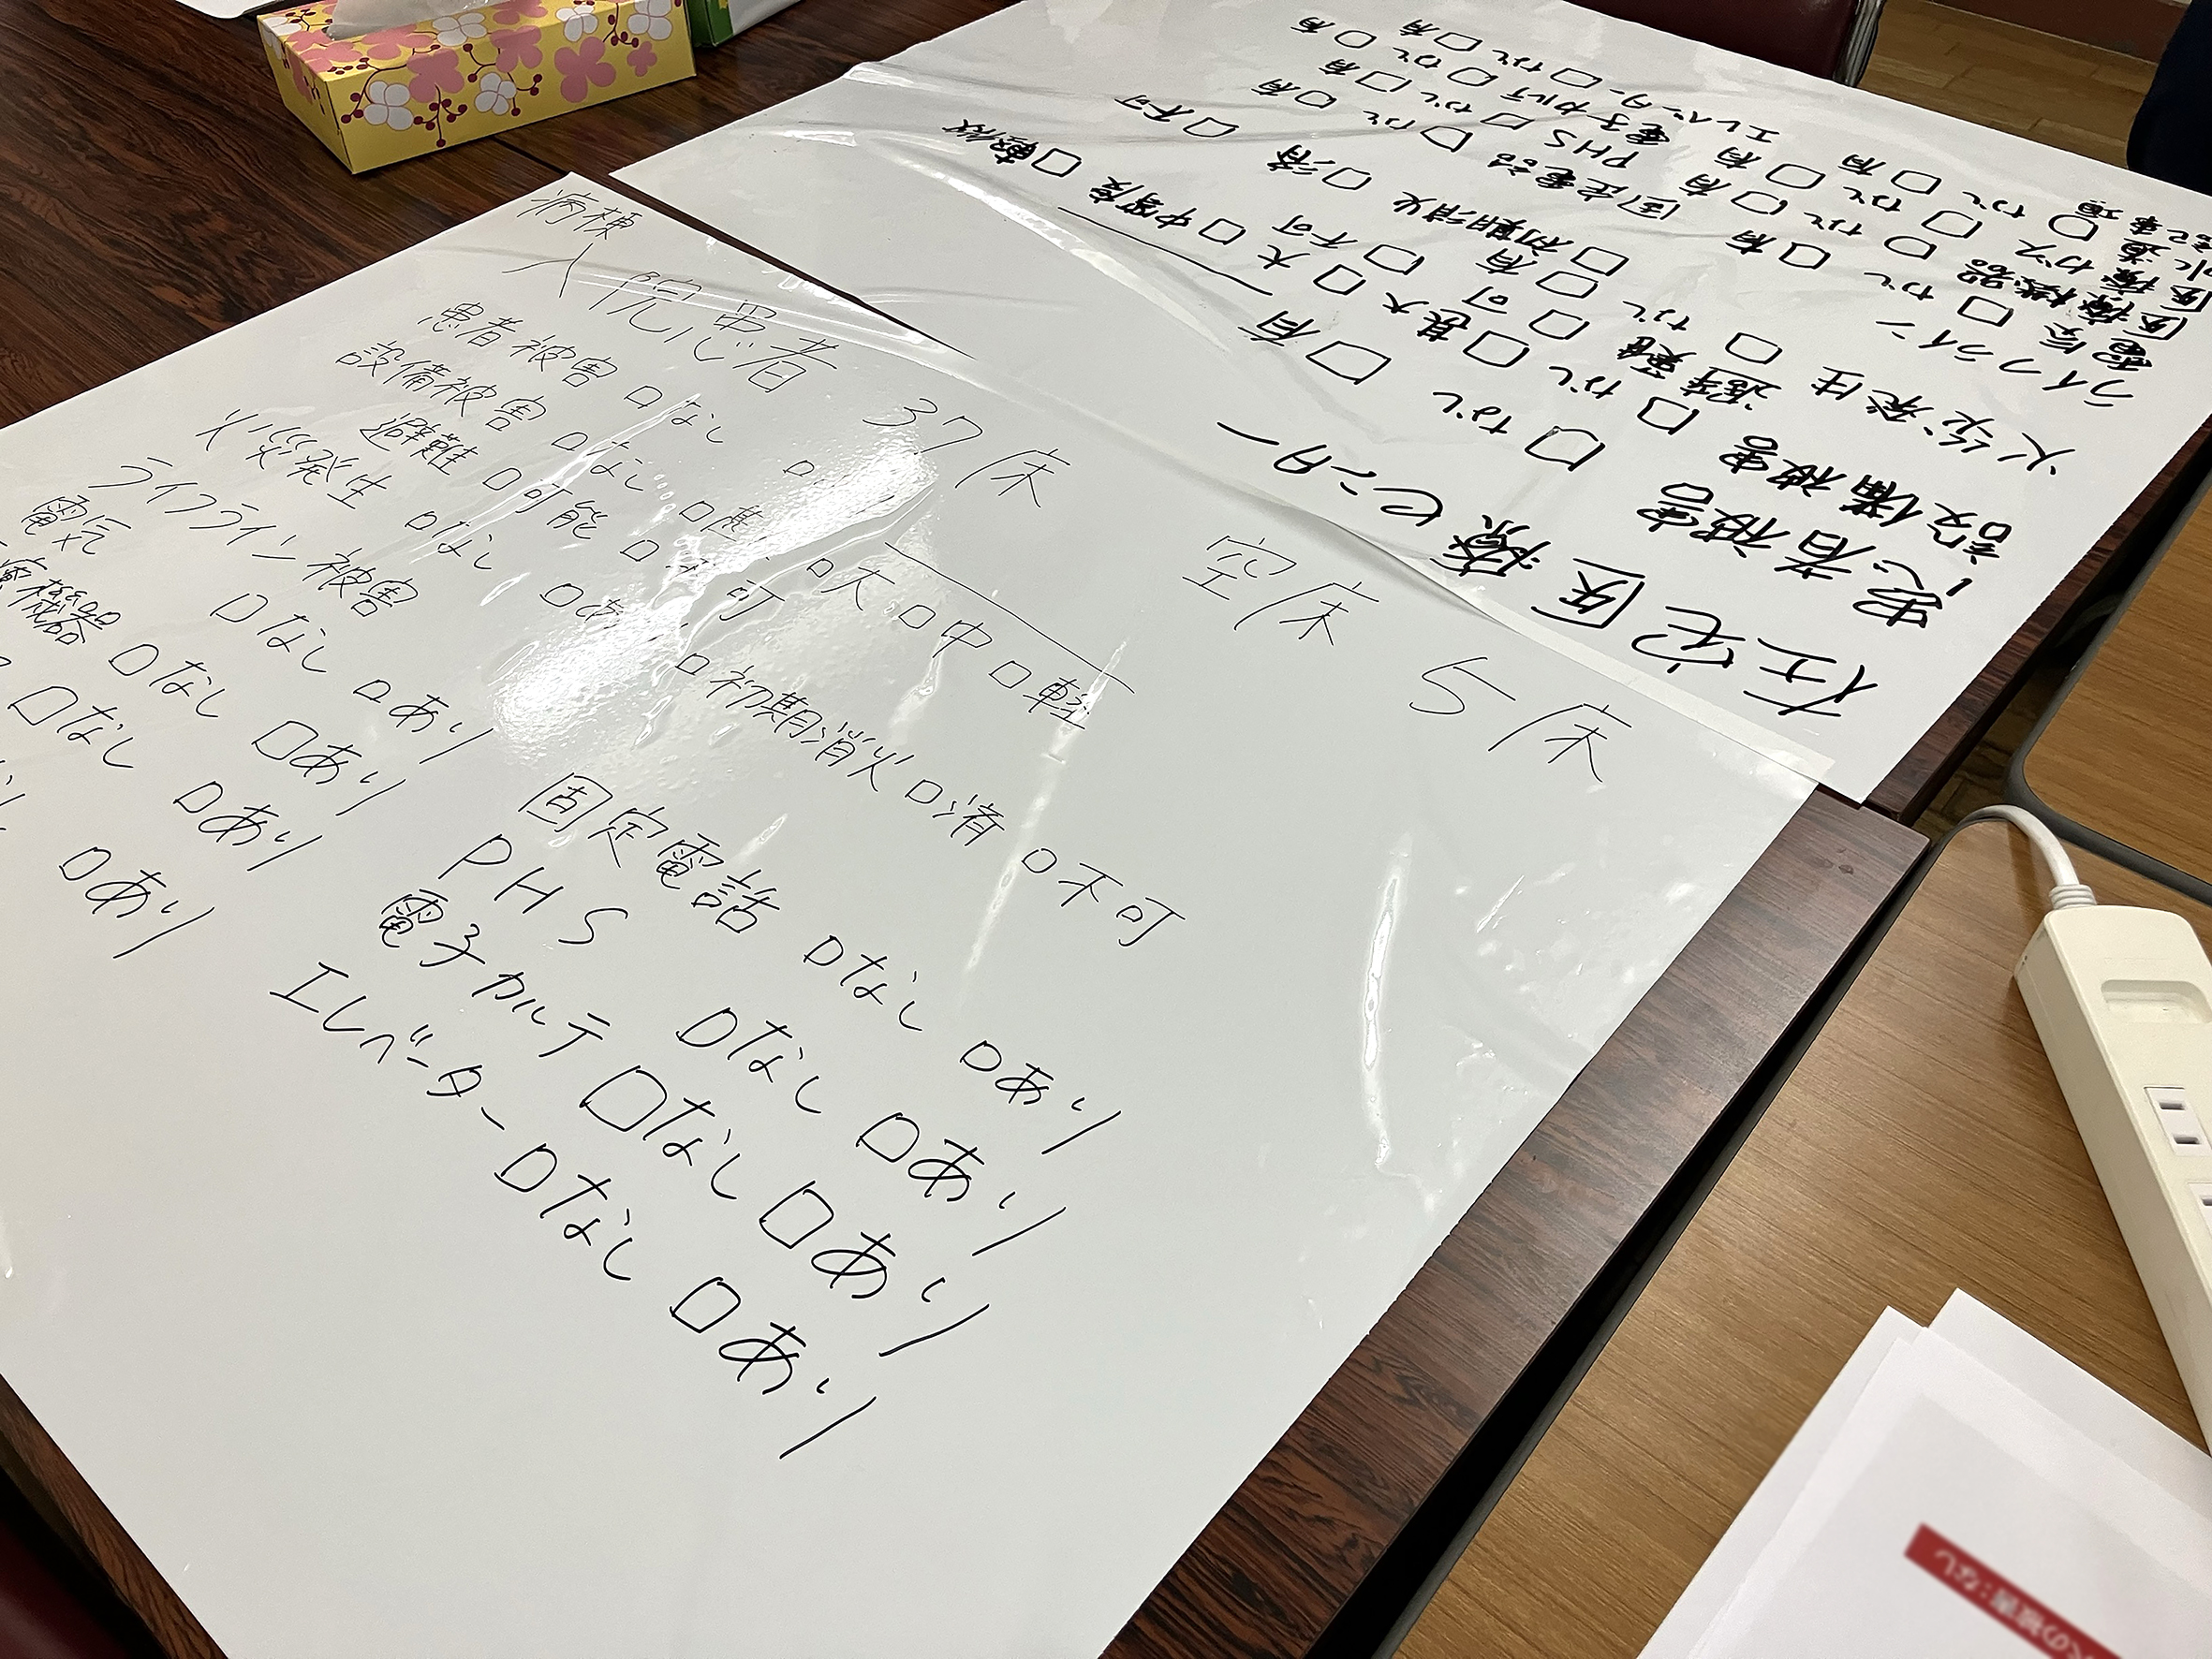 病棟
入院患者 37床 空床 5床
患者被害 □なし □
設備被害 □なし □甚 □大 □中 □軽
避難 □可能 □不可
火災発生 □なし □あり □初期消火 □済 □不可
ライフライン被害
電気 □なし □あり 固定電話 □なし □あり
機器 □なし □あり PHS □なし □あり
□なし □あり 電子カルテ □なし □あり
□あり エレベーター □なし □あり
在宅医療センター
患者被害 □なし □有
設備被害 □なし □甚大 □大 □中等度 □軽微
避難 □可 □不可
火災発生 □なし □有 □初期消火 □済 □不可
ライフライン
電気 □なし □有 固定電話 □なし □有
医療機器 □なし □有 PHS □なし □有
医療ガス □なし □有 電子カルテ □なし □有
水道 □なし □有 エレベーター □なし □有